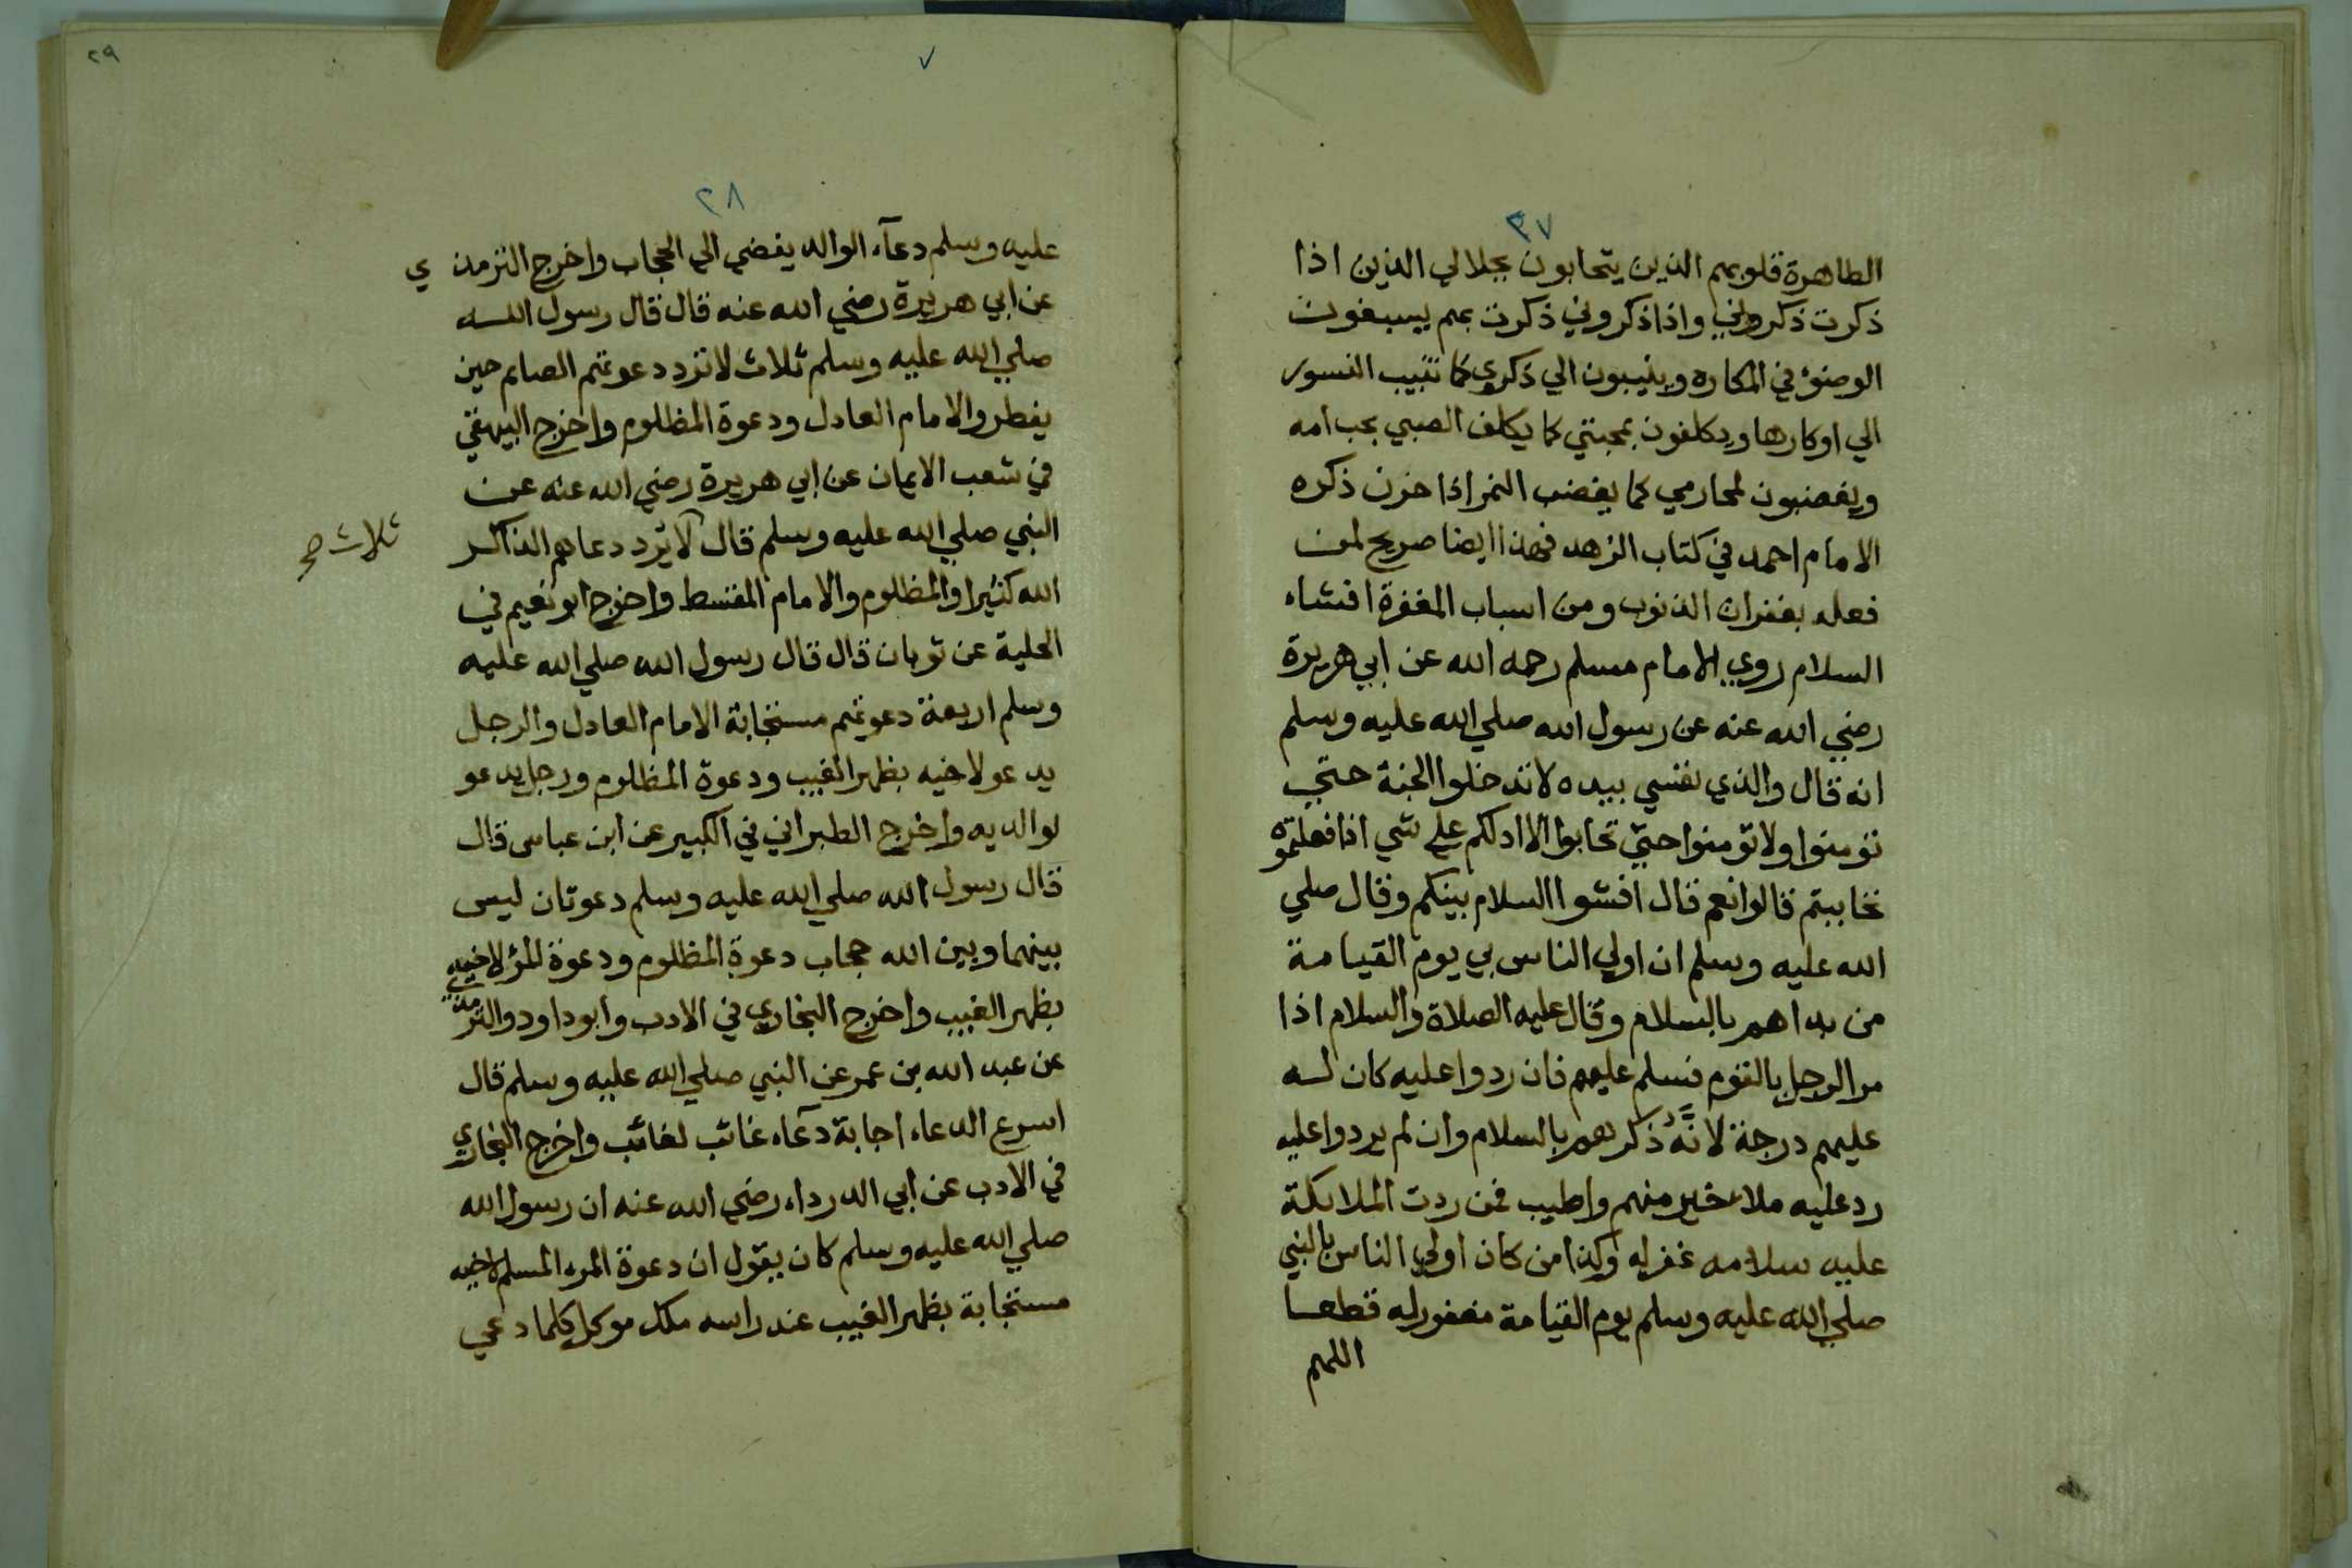 ٣٧
الطاهرة قلوبهم الذين يتحابون بجلالي الذين اذا
ذكرت ذكروني واذا ذكروني ذكرت بهم يسبغون
الوضوء في المكاره وينيبون الي ذكري كما تنيب النسور
الي اوكارها ويكلفون بمحبتي كما يكلف الصبي بحب امه
ويغضبون لمحارمي كما يغضب النمر اذا حزن ذكره
الامام احمد في كتاب الزهد فهذا ايضا صريح لمن
فعله بغفران الذنوب ومن اسباب المغفرة افشاء
السلام روي الامام مسلم رحمه الله عن ابي هريرة
رضي الله عنه عن رسول الله صلي الله عليه وسلم
انه قال والذي نفسي بيده لا تدخلوا الجنة حتي
تؤمنوا ولا تؤمنوا حتي تحابوا الا ادلكم علي شي اذا فعلتموه
تحاببتم قالوا نعم قال افشوا السلام بينكم وقال صلي
الله عليه وسلم ان اولي الناس بي يوم القيامة
من بداهم بالسلام وقال عليه الصلاة والسلام اذا
مر الرجل بالقوم فسلم عليهم فان ردوا عليه كان له
عليهم درجة لانَّهُ ذكرهم بالسلام وان لم يردوا عليه
رد عليه ملاء خير منهم واطيب فمن ردت الملايكة
عليه سلامه غفر له وكذا من كان اولي الناس بالنبي
صلي الله عليه وسلم يوم القيامة مغفور له قطعا
اللهم
٢٩
٢٨
عليه وسلم دعآء الوالد يفضي الي الحجاب واخرج الترمذي
عن ابي هريرة رضي الله عنه قال قال رسول الله
صلي الله عليه وسلم ثلاث لا ترد دعوتهم الصايم حين
يفطر والامام العادل ودعوة المظلوم واخرج البيهقي
في شعب الايمان عن ابي هريرة رضي الله عنه عن
النبي صلي الله عليه وسلم قال لا يرد دعاهم الذاكر
ثلاث صح
الله كثيرا والمظلوم والامام المقسط واخرج ابو نعيم في
الحلية عن ثوبان قال قال رسول الله صلي الله عليه
وسلم اربعة دعوتهم مستجابة الامام العادل والرجل
يدعو لاخيه بظهر الغيب ودعوة المظلوم ورجل يدعو
لوالديه واخرج الطبراني في الكبير عن ابن عباس قال
قال رسول الله صلي الله عليه وسلم دعوتان ليس
بينهما وبين الله حجاب دعوة المظلوم ودعوة المرؤ لاخيه
بظهر الغيب واخرج البخاري في الادب وابو داود والترمذي
عن عبد الله بن عمر عن النبي صلي الله عليه وسلم قال
اسرع الدعاء اجابة دعآء غائب لغائب واخرج البخاري
في الادب عن ابي الدرداء رضي الله عنه ان رسول الله
صلي الله عليه وسلم كان يقول ان دعوة المرء المسلم لاخيه
مستجابة بظهر الغيب عند راسه ملك موكل كلما دعي